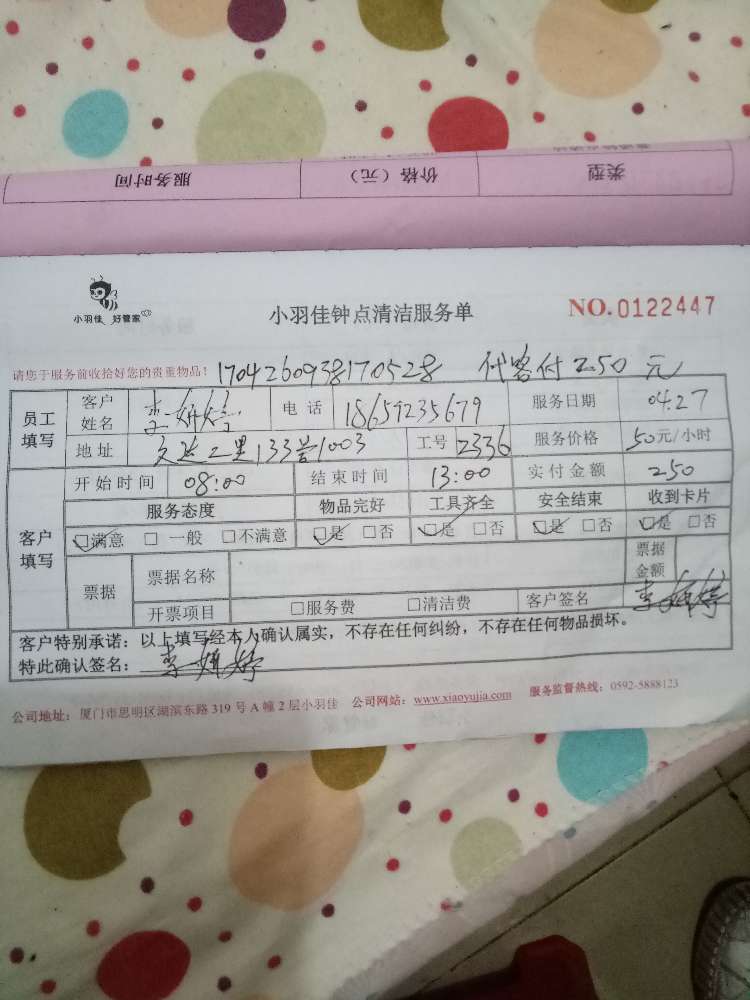 类型 价格（元） 服务时间
小羽佳 好管家
小羽佳钟点清洁服务单 NO.0122447
请您于服务前收拾好您的贵重物品！ 1704260938170528 代客付250元
员工填写 客户姓名 李妍婷 电话 18659235679 服务日期 04.27
地址 文达二里133号1003 工号 2336 服务价格 50元/小时
开始时间 08:00 结束时间 13:00 实付金额 250
客户填写 服务态度 物品完好 工具齐全 安全结束 收到卡片
□满意 □一般 □不满意 □是 □否 □是 □否 □是 □否 □是 □否
票据 票据名称 票据金额
开票项目 □服务费 □清洁费 客户签名 李妍婷
客户特别承诺：以上填写经本人确认属实，不存在任何纠纷，不存在任何物品损坏。
特此确认签名： 李妍婷
公司地址：厦门市思明区湖滨东路319号A幢2层小羽佳 公司网站：www.xiaoyujia.com 服务监督热线：0592-5888123